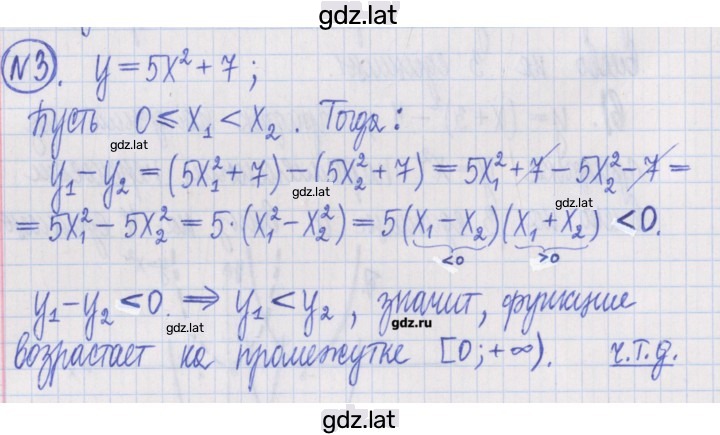 gdz.lat
№3. y = 5x² + 7 ;
Пусть 0 ≤ x₁ < x₂. Тогда:
gdz.lat
y₁ − y₂ = (5x₁² + 7) − (5x₂² + 7) = 5x₁² + 7 − 5x₂² − 7 =
gdz.lat
gdz.lat
= 5x₁² − 5x₂² = 5·(x₁² − x₂²) = 5(x₁ − x₂)(x₁ + x₂) < 0.
<0 >0
y₁ − y₂ < 0. ⇒ y₁ < y₂, значит, функция
gdz.lat
gdz.ru
возрастает на промежутке [0; +∞). ч.т.д.
gdz.lat
gdz.lat
gdz.lat